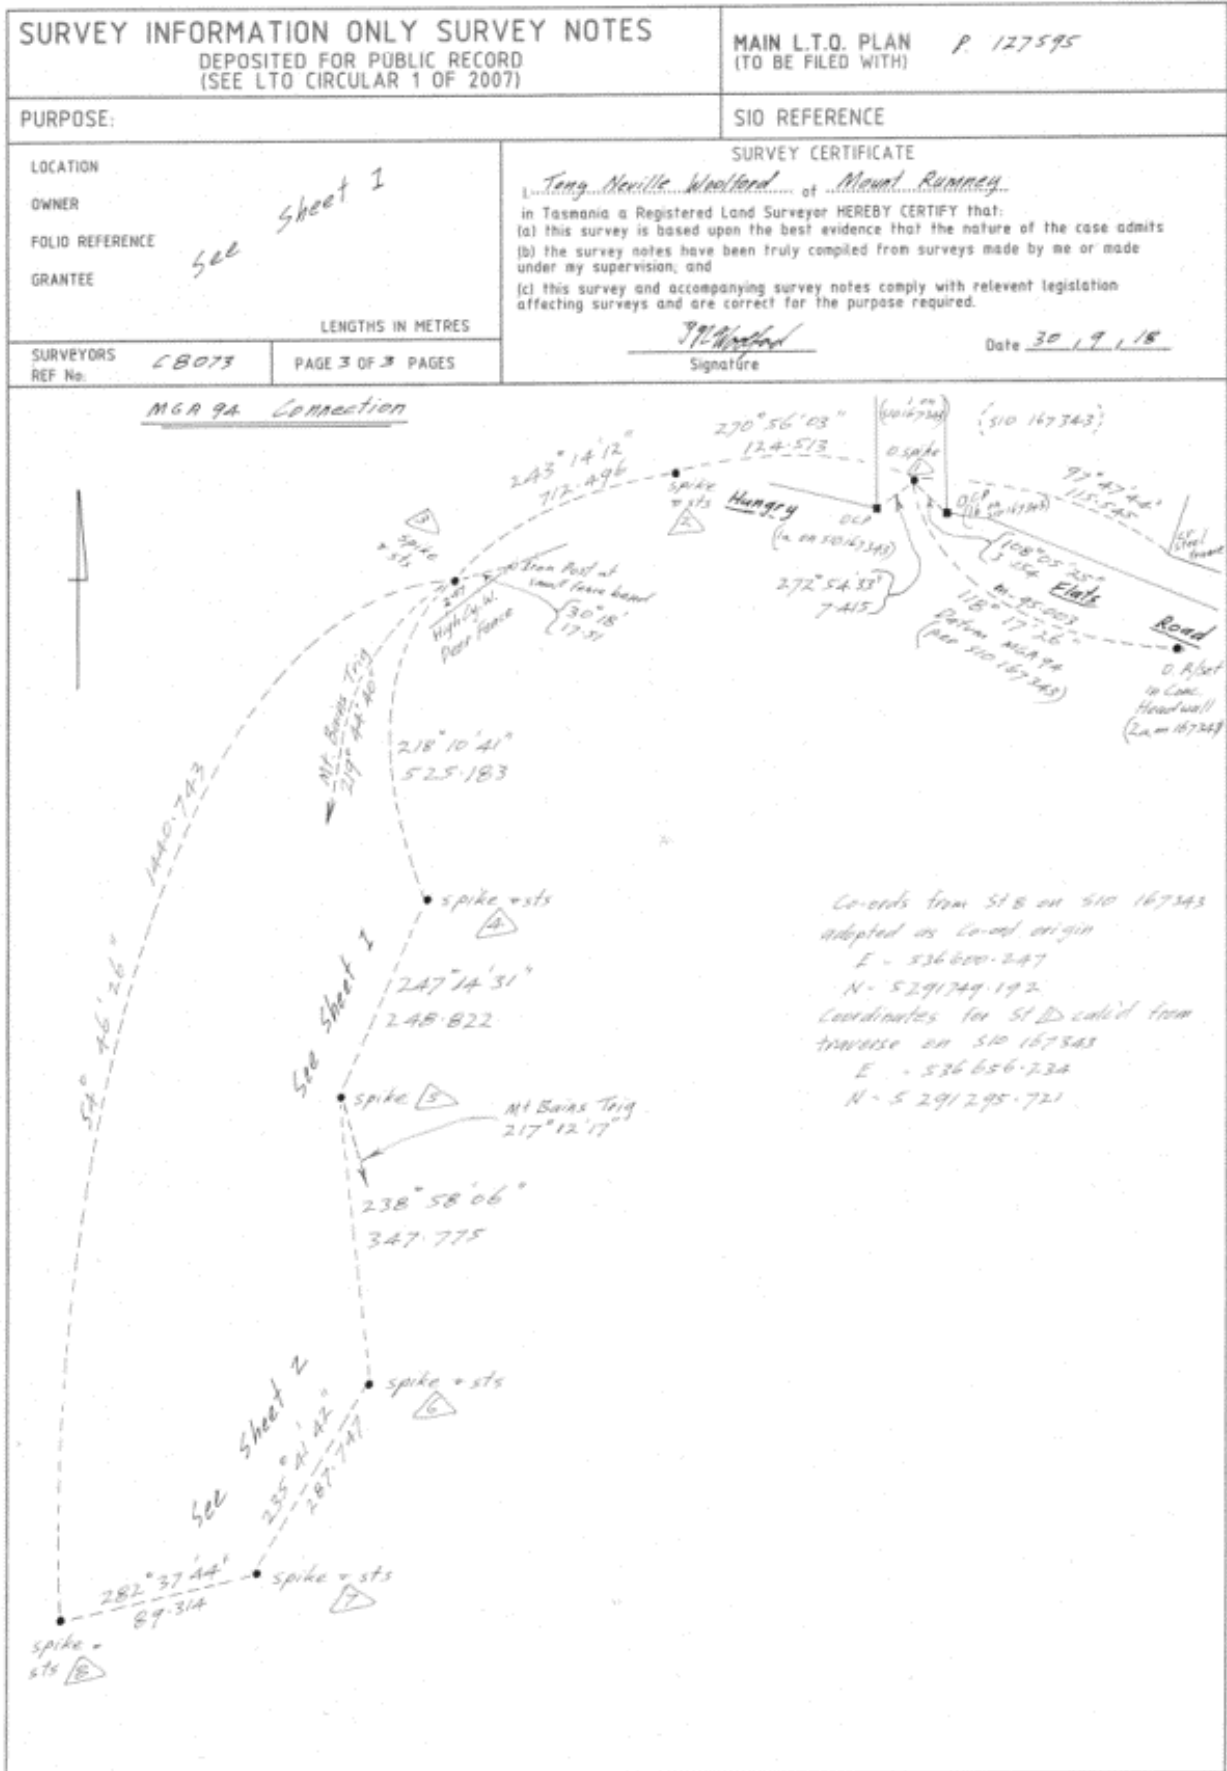 SURVEY INFORMATION ONLY SURVEY NOTES
DEPOSITED FOR PUBLIC RECORD
(SEE LTO CIRCULAR 1 OF 2007)
MAIN L.T.O. PLAN P. 127595
(TO BE FILED WITH)
PURPOSE:
SIO REFERENCE
LOCATION
OWNER
FOLIO REFERENCE
GRANTEE
See Sheet 1
LENGTHS IN METRES
SURVEYORS
REF No: CB073
PAGE 3 OF 3 PAGES
SURVEY CERTIFICATE
I, Tony Neville Woolford of Mount Rumney
in Tasmania a Registered Land Surveyor HEREBY CERTIFY that:
(a) this survey is based upon the best evidence that the nature of the case admits
(b) the survey notes have been truly compiled from surveys made by me or made
under my supervision; and
(c) this survey and accompanying survey notes comply with relevent legislation
affecting surveys and are correct for the purpose required.
Signature
Date 30 / 9 / 18
MGA 94 Connection
243° 14' 12"
712.496
270° 56' 03"
124.513
(SIO 167343)
(SIO 167343)
O.Spike
1
97° 47' 44"
115.545
spike
+ sts
2
Hungry
O.C.P
(1a on SIO 167343)
O.C.P
(1b on SIO 167343)
272° 54' 33"
7.415
108° 05' 25"
3.254
Flats
m-95.003
118° 17' 26"
Datum MGA 94
(per SIO 167343)
Road
O. R/set
in Conc.
Headwall
3
spike
+ sts
Iron Post at
small fence bend
30° 18'
17.51
High Cy. W.
Deer Fence
Mt. Bains Trig
219° 44' 40"
218° 10' 41"
525.183
1440.743
54° 46' 26"
spike + sts
4
See Sheet 1
247° 14' 31"
248.822
spike 5
Mt Bains Trig
217° 12' 17"
238° 58' 06"
347.775
Co-ords from St 8 on SIO 167343
adopted as Co-ord origin
E - 536600.247
N - 5291749.192
Coordinates for St 1 calc'd from
traverse on SIO 167343
E - 536656.234
N - 5 291295.721
spike + sts
6
See Sheet 2
235° 41' 42"
287.747
282° 37' 44"
89.314
spike + sts
7
spike +
sts 8